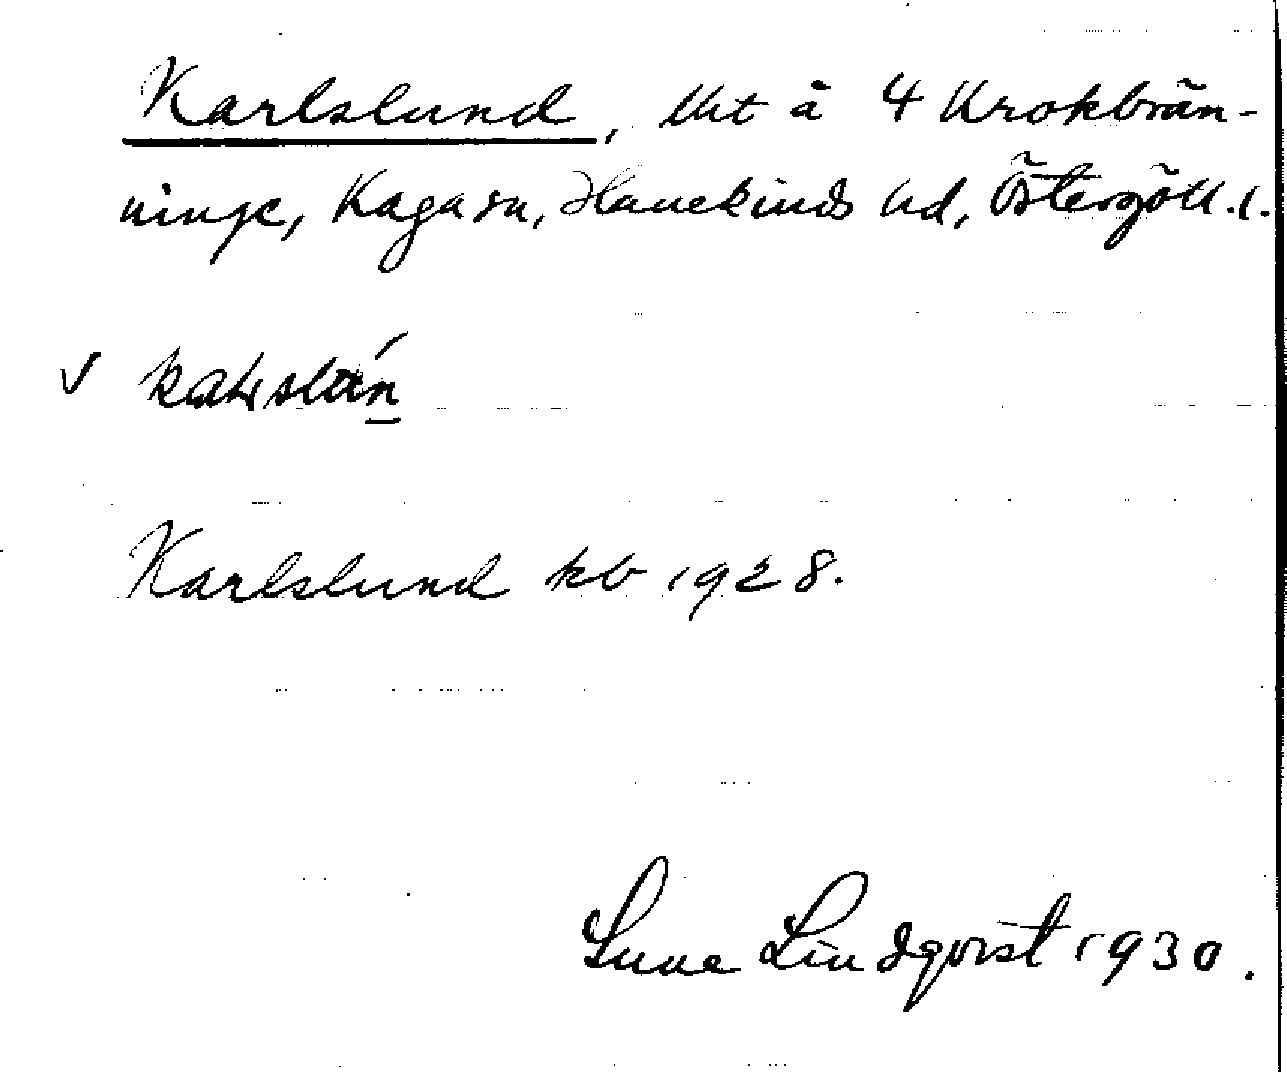 Karlslund, lht å 4 Krokbrän-
ninge, Kaga sn, Hanekinds hd, Östergötl. l.
√
Karlslund kb 1928.
Sune Lindqvist 1930.